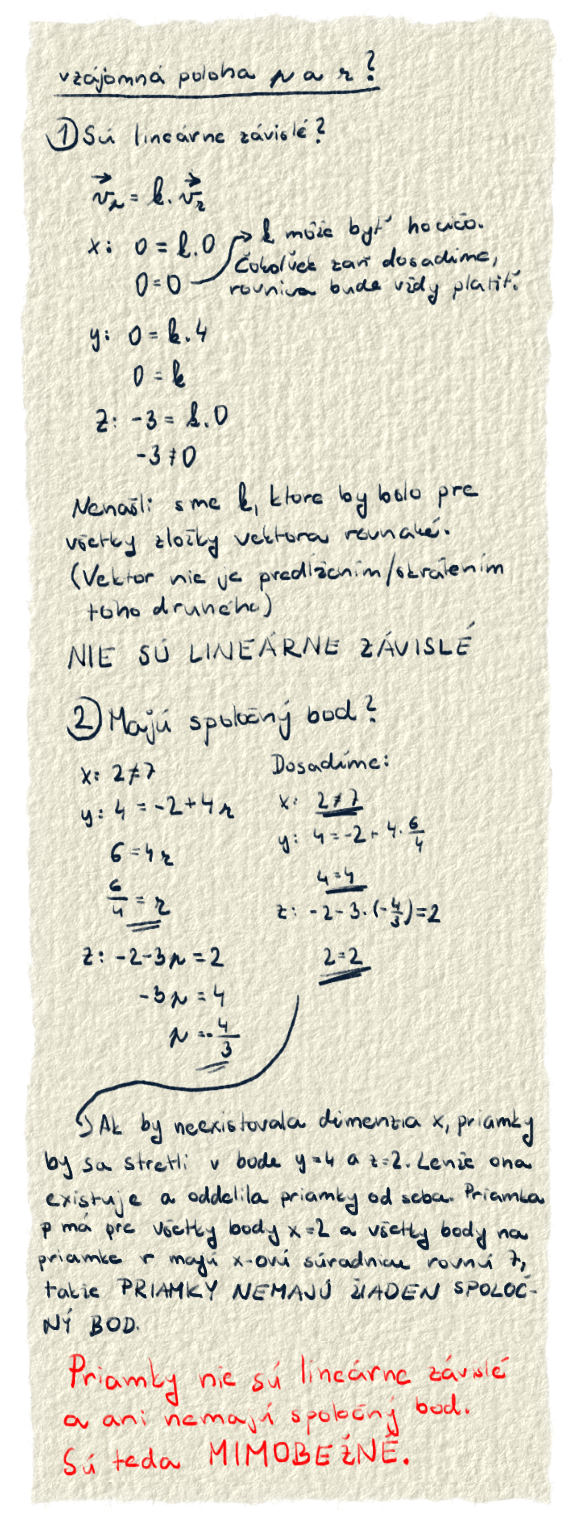 vzájomná poloha p a r?
① Sú lineárne závislé?
v⃗r = k. v⃗r
x: 0 = k.0 → k môže byť hocičo.
0=0 Čokoľvek zaň dosadíme,
rovnica bude vždy platiť.
y: 0 = k.4
0 = k
z: -3 = k.0
-3 ≠ 0
Nenašli sme k, ktoré by bolo pre
všetky zložky vektora rovnaké.
(Vektor nie je predĺžením/skrátením
toho druhého)
NIE SÚ LINEÁRNE ZÁVISLÉ
② Majú spoločný bod?
x: 2≠7
y: 4 = -2+4r
6 = 4r
6/4 = r
z: -2-3p = 2
-3p = 4
p = -4/3
Dosadíme:
x: 2≠7
y: 4 = -2+4.6/4
4=4
z: -2-3.(-4/3)=2
2=2
→ Ak by neexistovala dimenzia x, priamky
by sa stretli v bode y=4 a z=2. Lenže ona
existuje a oddelila priamky od seba. Priamka
p má pre všetky body x=2 a všetky body na
priamke r majú x-ovú súradnicu rovnú 7,
takže PRIAMKY NEMAJÚ ŽIADEN SPOLOČ-
NÝ BOD.
Priamky nie sú lineárne závislé
a ani nemajú spoločný bod.
Sú teda MIMOBEŽNÉ.